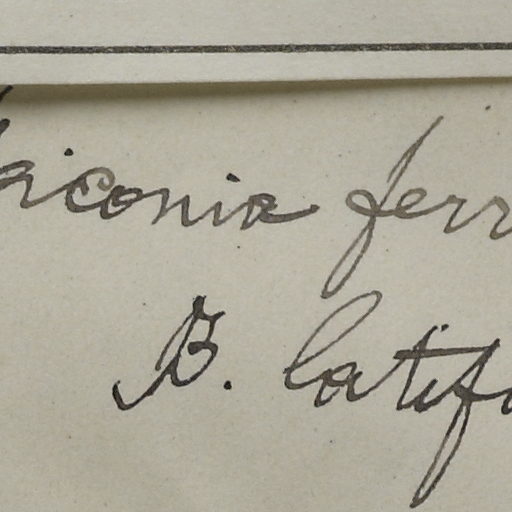 aiconia ferr
B. latifo